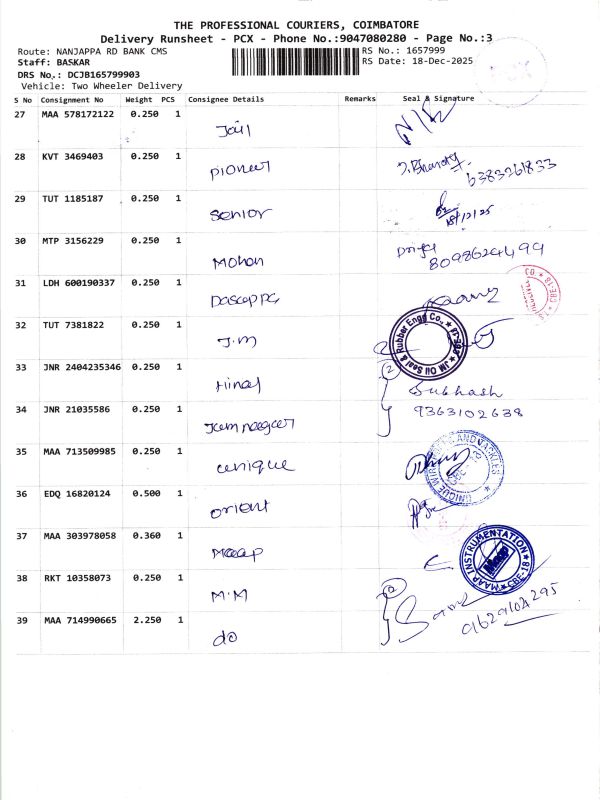 THE PROFESSIONAL COURIERS, COIMBATORE
Delivery Runsheet - PCX - Phone No.:9047080280 - Page No.:3
Route: NANJAPPA RD BANK CMS RS No.: 1657999
Staff: BASKAR RS Date: 18-Dec-2025
DRS No.: DCJB165799903
Vehicle: Two Wheeler Delivery
S No Consignment No Weight PCS Consignee Details Remarks Seal & Signature
27 MAA 578172122 0.250 1
Jail
28 KVT 3469403 0.250 1
pioneer 6383261833
29 TUT 1185187 0.250 1
senior 18/12/25
30 MTP 3156229 0.250 1
Mohan 8098624499
31 LDH 600190337 0.250 1
32 TUT 7381822 0.250 1
J.M JM Oil Seal & Rubber Engg Co., CBE-18
33 JNR 2404235346 0.250 1 2
Hinal Subhash
34 JNR 21035586 0.250 1 9363102638
35 MAA 713509985 0.250 1
unique
36 EDQ 16820124 0.500 1
orient
37 MAA 303978058 0.360 1
Maap MAAP INSTRUMENTATION CBE-18 Maap
38 RKT 10358073 0.250 1 2
M.M
39 MAA 714990665 2.250 1 9629104295
do